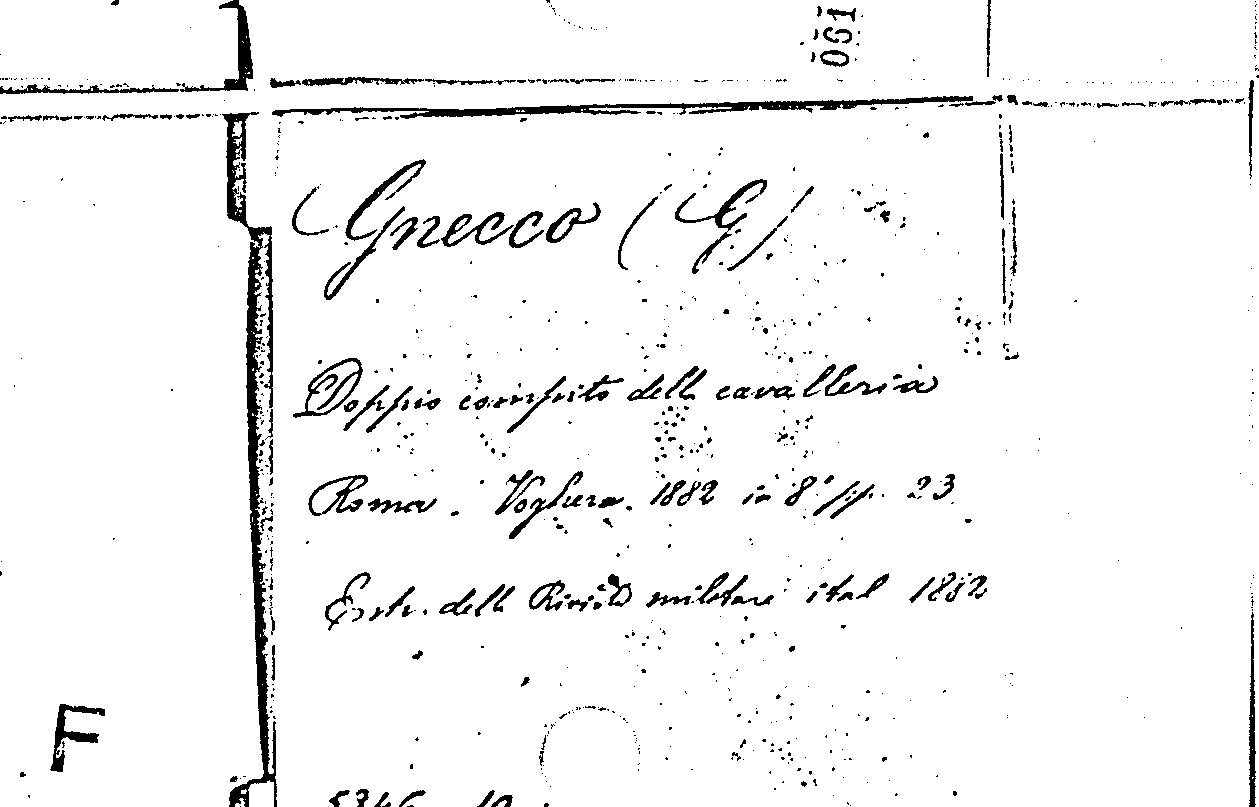 061
Gnecco (G)
Doppio compito della cavalleria
Roma. Voghera. 1882 in 8° pp. 23
Estr. della Rivista militare ital 1882
F